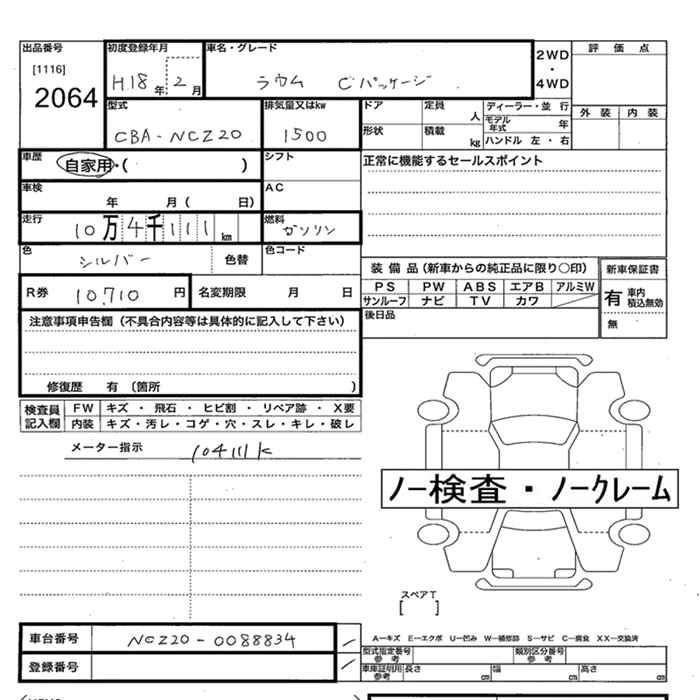 出品番号 初度登録年月 車名・グレード 2WD ・ 4WD 評価点
[1116] H.18年 2月 ラウム Cパッケージ
2064
型式 排気量又はkw ドア 定員 人 ディーラー・並 行 外装 内装
CBA-NCZ20 1500 形状 積載 kg モデル年式 年
ハンドル 左・右
車歴 自家用・( ) シフト 正常に機能するセールスポイント
車検 年 月( 日) AC
走行 10万4千111km 燃料 ガソリン
色 シルバー 色替 色コード
装備品(新車からの純正品に限り○印) 新車保証書
PS PW ABS エアB アルミW 有 車内積込無効
サンルーフ ナビ TV カワ
R券 10,710円 名変期限 月 日 後日品 無
注意事項申告欄(不具合内容等は具体的に記入して下さい)
修復歴 有 (箇所 )
検査員記入欄 FW キズ・飛石・ヒビ割・リペア跡・X要
内装 キズ・汚レ・コゲ・穴・スレ・キレ・破レ
メーター指示 104111k
ノー検査・ノークレーム
スペアT
[ ]
車台番号 NCZ20-0088834
A−キズ E−エクボ U−凹み W−補修跡 S−サビ C−腐食 XX−交換済
登録番号 型式指定番号 参考 類別区分番号 参考
車庫証明用 参考 長さ cm 幅 cm 高さ cm